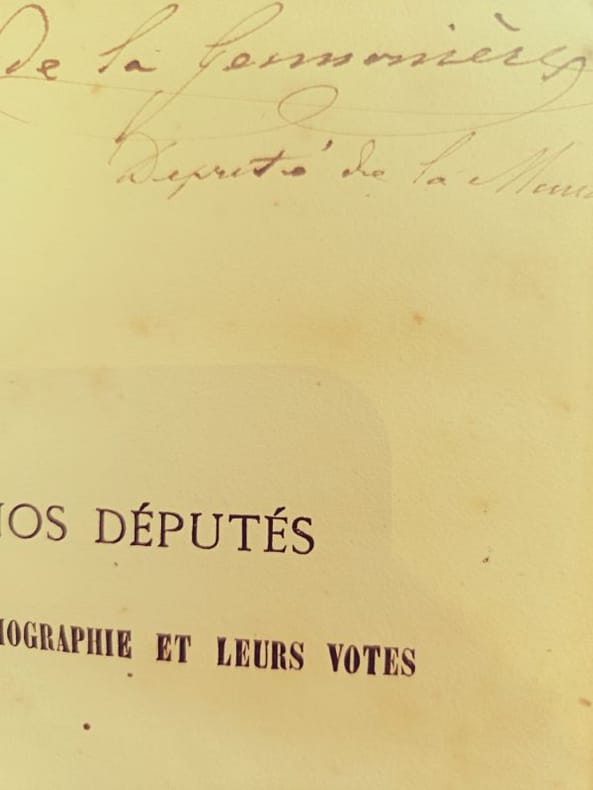 de la Germonière
Député de la Man
NOS DÉPUTÉS
IOGRAPHIE ET LEURS VOTES